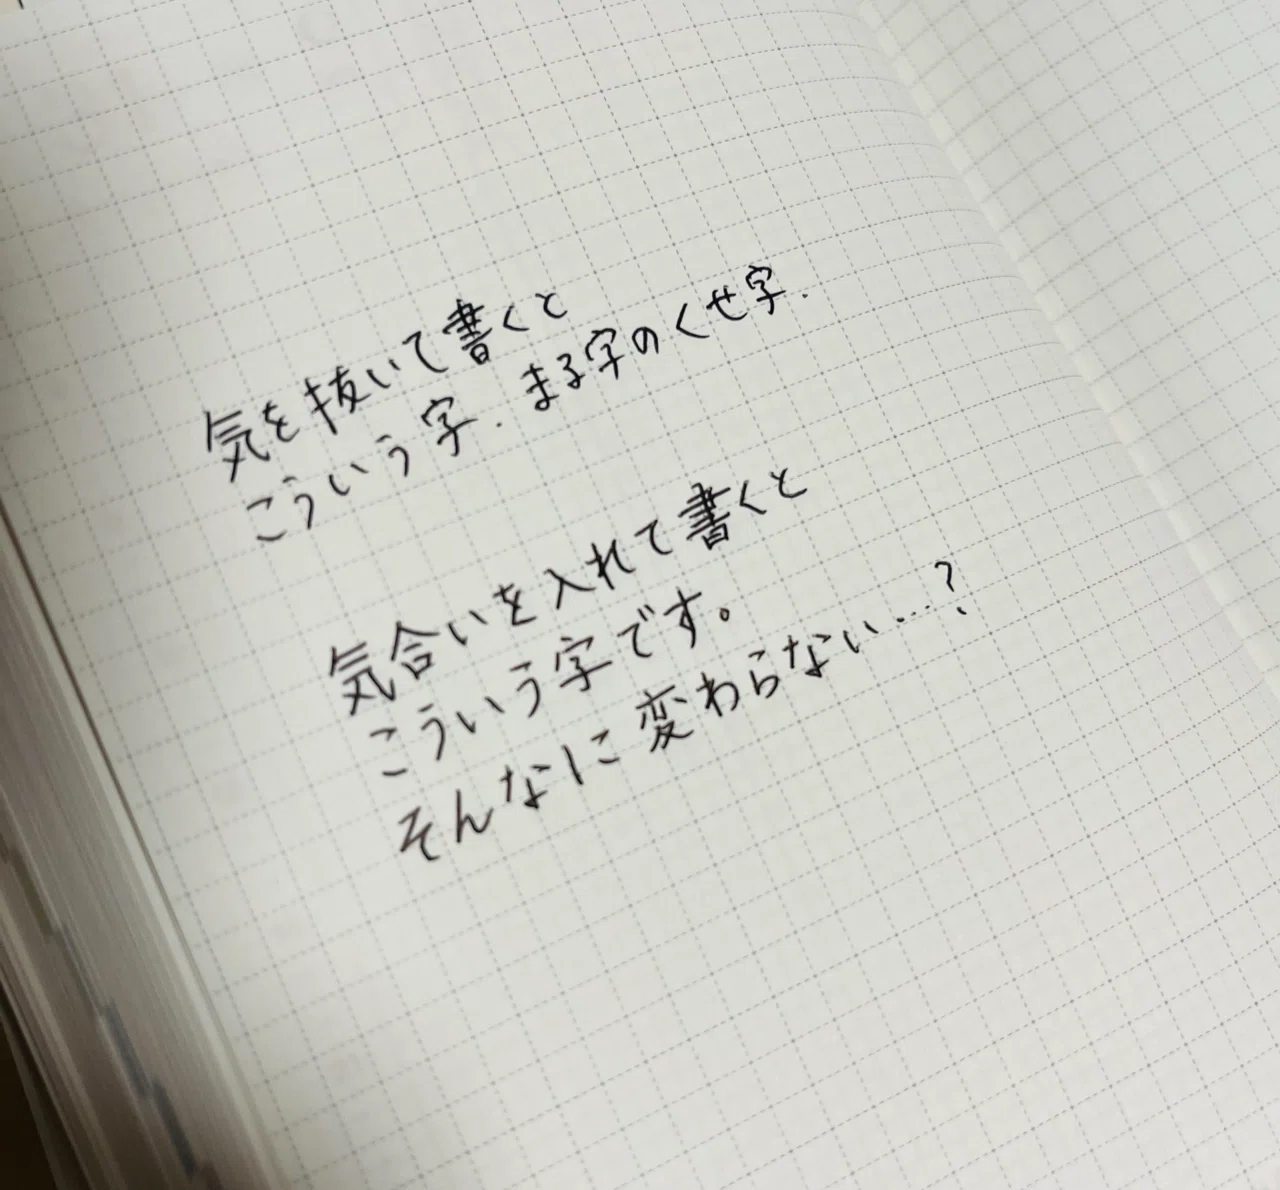 気を抜いて書くと
こういう字. まる字のくせ字.
気合いを入れて書くと
こういう字です。
そんなに変わらない…?